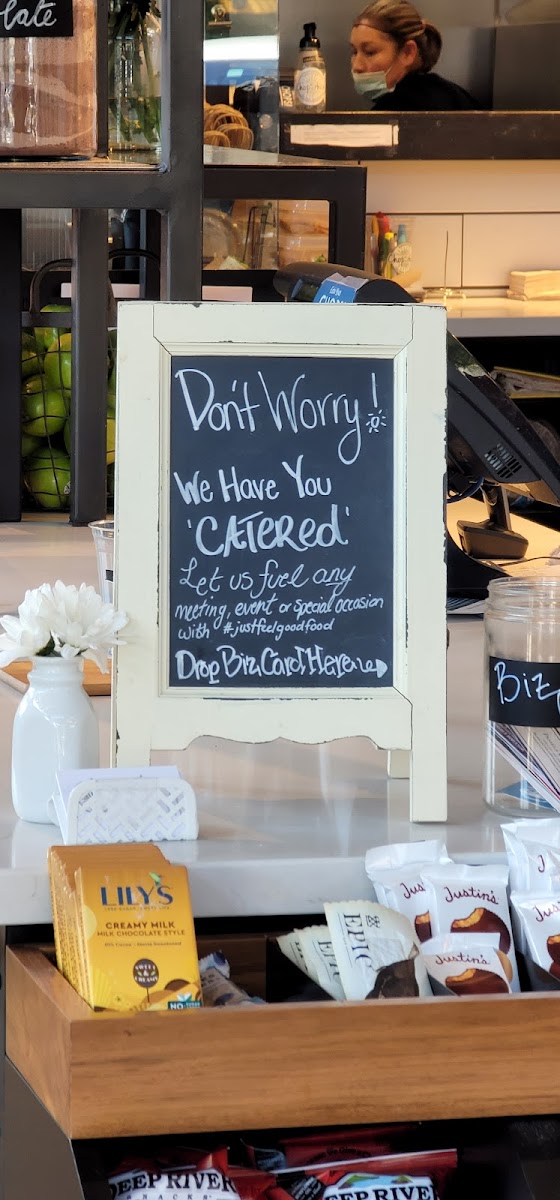 late
Don't Worry!
We Have You
'CATERED'
Let us fuel any
meeting, event or special occasion
with #justfeelgoodfood
Drop Biz Card Here
Biz
LILY'S
CREAMY MILK
MILK CHOCOLATE STYLE
SWEET &
CREAMY
NO-SUGAR
EPIC
EPIC
Jus
Justin's
Justin's
J
Jus
DEEP RIVER
SNACKS
DEEP RIVER